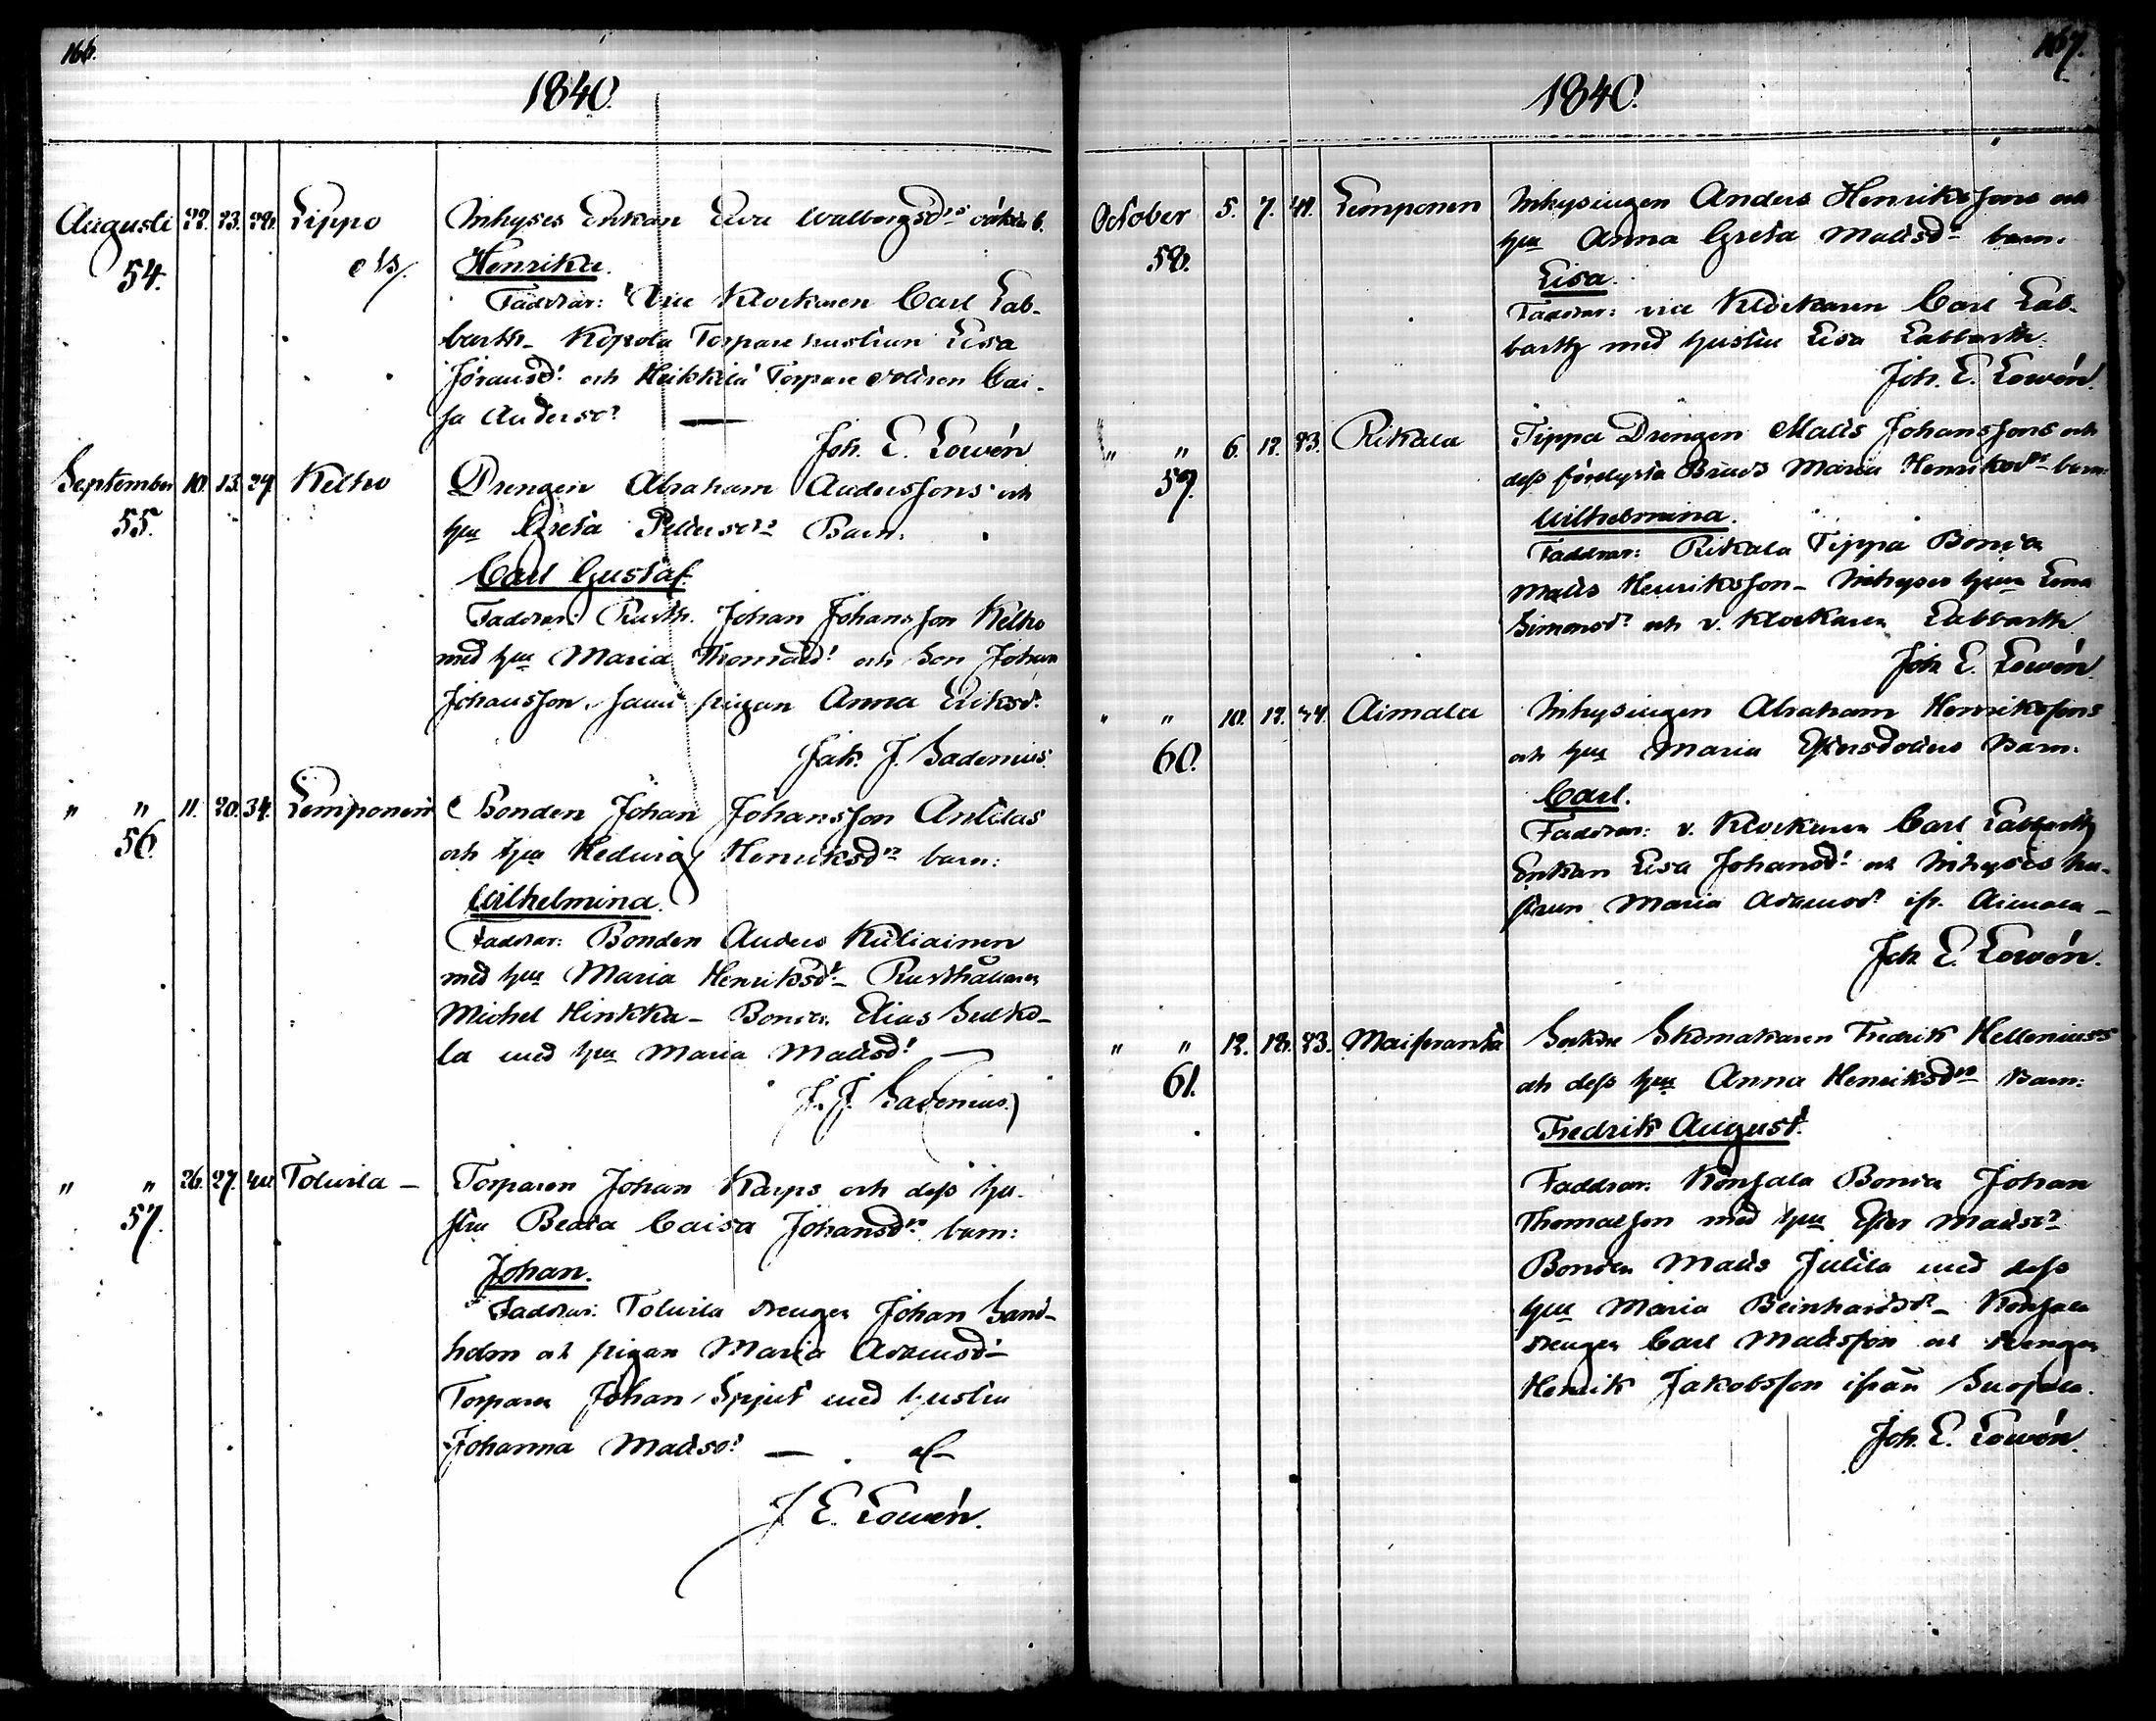 166.
1840.
Augusti 22. 23. 28. Lippo Inhyses Enkan Eva Walborgsdrs oäkta b.
54. Henrika.
Faddrar: Vice Klockaren Carl Lab-
barth - Kopola Torpare hustrun Lisa
Göransdr och Heikkilä Torpare Cai-
sa Andersdr
Joh. E. Lowén
September 10. 13. 27 Kelho Drengen Abraham Anderssons och
55. hu Greta Pettersdrs Barn:
Carl Gustaf.
Faddrar: Rusth. Johan Johansson Kelho
med hu Maria Thomasdr och Son Johan
Johansson, samt pigan Anna Eriksdr
Jak. J. Sadenius.
" " 11. 20. 34. Lemponen Bonden Johan Johansson Anttilas
56. och hu Hedwig Henriksdrs barn:
Wilhelmina.
Faddrar: Bonden Anders Kuliainen
med hu Maria Henriksdr - Rusthållaren
Michel Hinkka - Bonden Elias Seulko-
la med hu Maria Mattsdr
J. J. Sadenius.
" " 26. 27. Toluila - Torparen Johan Karps och dess hu-
57. stru Beata Caisa Johansdrs barn:
Johan.
Faddrar: Toluila drengen Johan Sand-
holm och pigan Maria Adamsdr -
Torparen Johan Spjut med hustru
Johanna Mattsdr
J E. Lowén.
167.
1840.
October 5. 7. 41. Lemponen Inhysingen Anders Henrikssons och
58. hu Anna Greta Mattsdrs barn:
Lisa.
Faddrar: vice Klockaren Carl Lab-
barth med hustru Lisa Labbarth.
Joh. E. Lowén.
" " 6. 12. 23. Rikala Tippa Drengen Matts Johanssons och
59. dess förelysta Bruds Maria Henriksdrs barn:
Wilhelmina.
Faddrar: Rikala Tippa Bonden
Matts Henriksson - Inhyses hu Lena
Simonsdr och v. Klockaren Labbarth
Joh E. Lowén.
" " 10. 12. 24. Aimala Inhysingen Abraham Henrikssons
60. och hu Maria Estersdotters Barn:
Carl.
Faddrar: v. Klockaren Carl Labbarth
Enkan Lisa Johansdr och Inhyses hu-
strun Maria Adamsdr ifr. Aimala -
Joh E. Lowén.
" " 12. 18. 23. Maisranta Sockne Skomakaren Fredrik Hellenius's
61. och dess hu Anna Henriksdrs Barn:
Fredrik August.
Faddrar: Konsala Bonden Johan
Thomasson med hu Ester Mattsdr
Bonden Matts Jutila med dess
hu Maria Beinhardsdr - Konsala
drengen Carl Mattsson och drengen
Henrik Jakobsson ifrån Suojala.
Joh. E. Lowén.